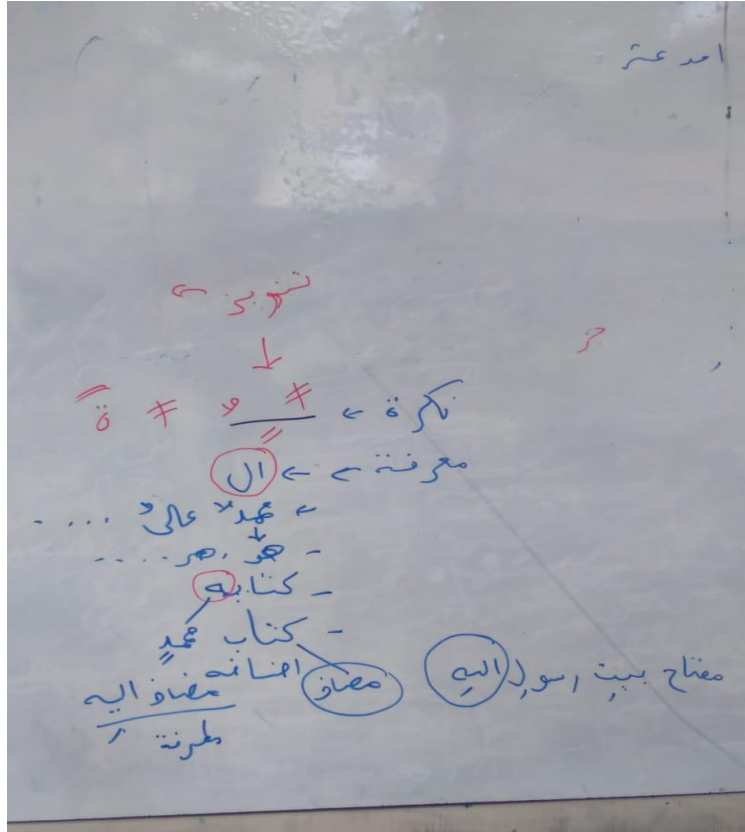 احد عشر
تنوين ←
↓
نكرة ←
معرفة ← ← ال
← محمدٌ عالىٌ ....
- هو . هم ....
- كتابه
- كتاب محمدٍ
مضاف اضافه مضاف اليه
معرفة
مفتاح بيت رسول الله